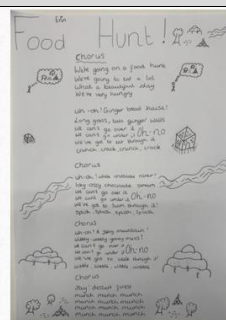 Food Hunt!
Chorus
We're going on a food hunt
We're going to eat a lot
What a beautiful day
We're very hungry
Uh-oh! Ginger bread house!
Long, ginger walls
We can't go over it
We can't go under it Oh-no
We've got to eat through it
crunch, crack, crunch, crack
Chorus
Uh-oh! chocolate river!
chocolate
We can't go over it
We can't go under it Oh-no
We've got to swim through it!
Splish, splosh, splish, splosh
Chorus
Uh-oh! A jelly mountain!
Wibbly wobbly
We can't go over it
We can't go under it Oh-no
We've got to walk through it!
Chorus
munch munch munch
munch munch munch munch
munch munch munch munch
munch munch munch munch